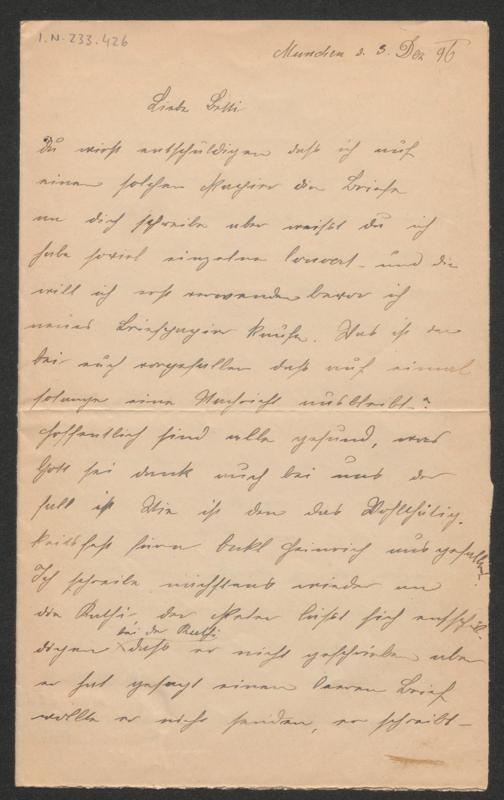 I.N. 233.426
München d. 3. Dez 96
Liebe Betti
Du wirst entschuldigen daß ich auf
einen solchen Papier die Briefe
an dich schreibe aber weißt du ich
habe soviel einzelne Couvert und die
will ich erst verwenden bevor ich
neues Briefpapier kaufe. Was ist den
bei euch vorgefallen daß auf einmal
solange eine Nachricht ausbleibt?
hoffentlich sind alle gesund, was
Gott sei dank auch bei uns der
fall ist Wie ist den das Wohlthätig-
keitsfest fürn Heinrich ausgefallen.
Ich schreibe nächstens wieder an
die Kathi der Peter läßt sich entschul-
bei der Kathi
digen daß er nicht geschrieben aber
er hat gesagt einen leeren Brief
wollte er nicht senden, er schreibt